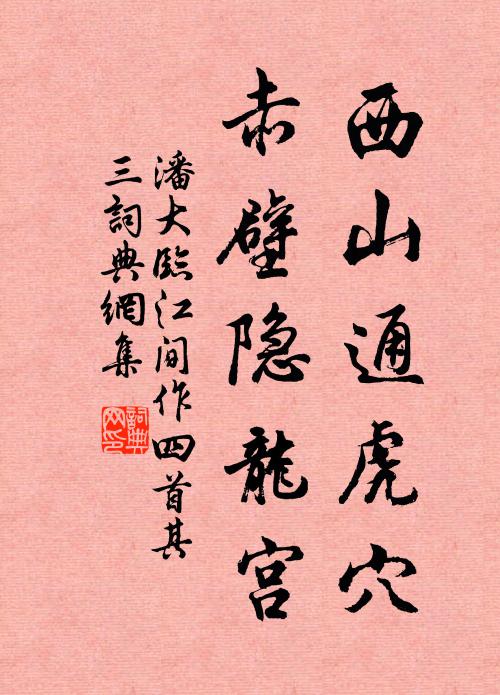 西山通虎穴
赤壁隐龍宫
潘大臨江间作四首其
三詞典網集
詞典
网印